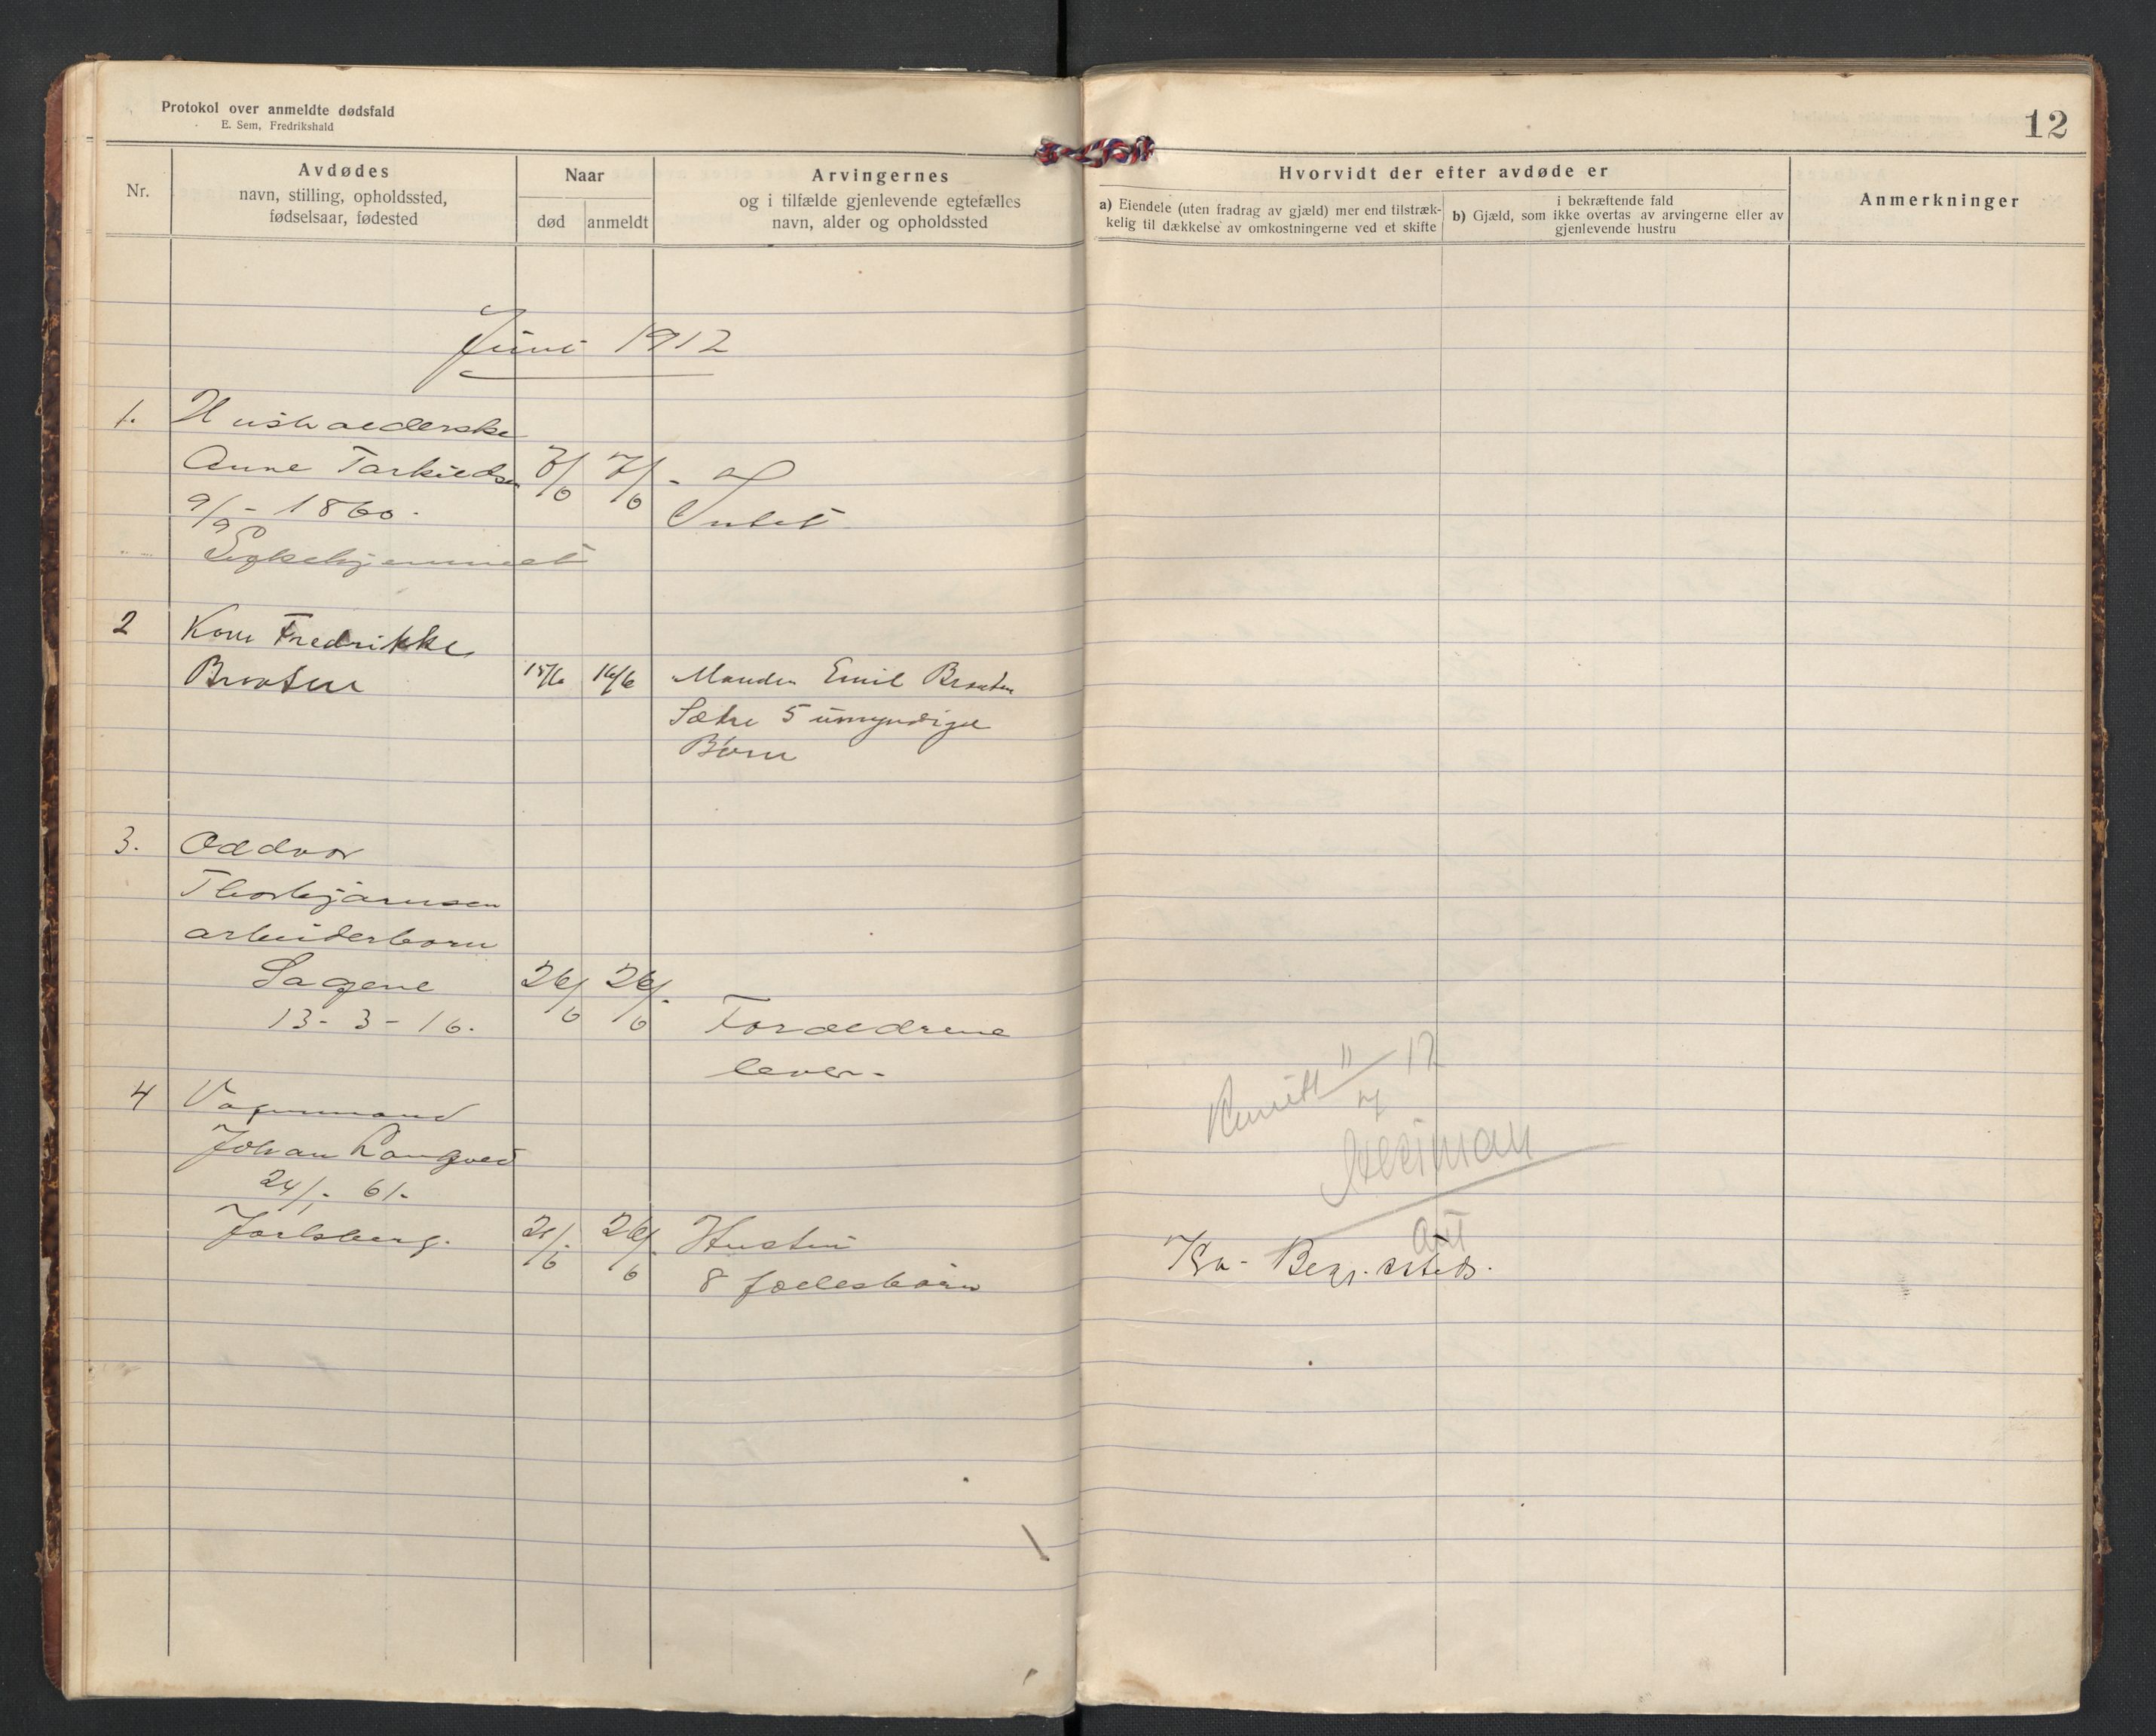 Protokol over anmeldte dødsfald
E. Sem, Fredrikshald
12
Nr.
Avdødes
navn, stilling, opholdssted,
fødselsaar, fødested
Naar
død
anmeldt
Arvingernes
og i tilfælde gjenlevende egtefælles
navn, alder og opholdssted
Hvorvidt der efter avdøde er
a) Eiendele (uten fradrag av gjæld) mer end tilstræk-
kelig til dækkelse av omkostningerne ved et skifte
i bekræftende fald
b) Gjæld, som ikke overtas av arvingerne eller av
gjenlevende hustru
Anmerkninger
Juni 1912
1. Husholderske
Anne Tarkildsen 7/6 7/6 -
9/9 - 1860. Intet
Sykehjemmet
2 Kone Fredrikke
Braaten 15/6 16/6 Manden Emil Braaten
Sætre 5 umyndige
Børn
3. Oddvar
Thorbjørnsen
arbeiderbarn
Sagene 26/6 26/6
13-3-16. Forældrene
lever-
4 Vognmand
Johan Langved
24/1. 61.
Jarlsberg. 25/6 26/6 Hustru
8 fællesbørn
11/7 17